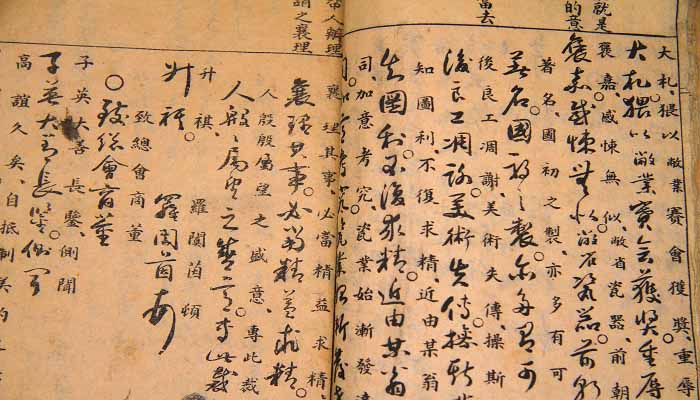 就是
的意
當去
大札。猥以敝業賽會獲獎。重辱
大札。猥以敝業賽會獲獎重辱
褒嘉感悚無似。敝省瓷器。前朝
褒嘉感悚無似敝省瓷器前朝
著名。國初之製。亦多有可
著名。國初之製。亦多有可
後良工凋謝。美術失傳。操斯
後良工凋謝。美術失傳操斯
知圖利。不復求精。近由某翁
知圖利。不復求精。近由某翁
司。加意考究。瓷業始漸發達
帝人辦理
謂之襄理
襄理其事。必當精益求精
襄理其事。必當精益求精
人殷殷屬望之盛意。專此裁
人殷殷屬望之盛意。專此裁
升祺。羅闓茵頓
升祺。羅闓茵頓
致總會商董
○致總會商董
子英大善長鑒。側聞
子英大善長鑒。側聞
高誼久矣。自抵制美約